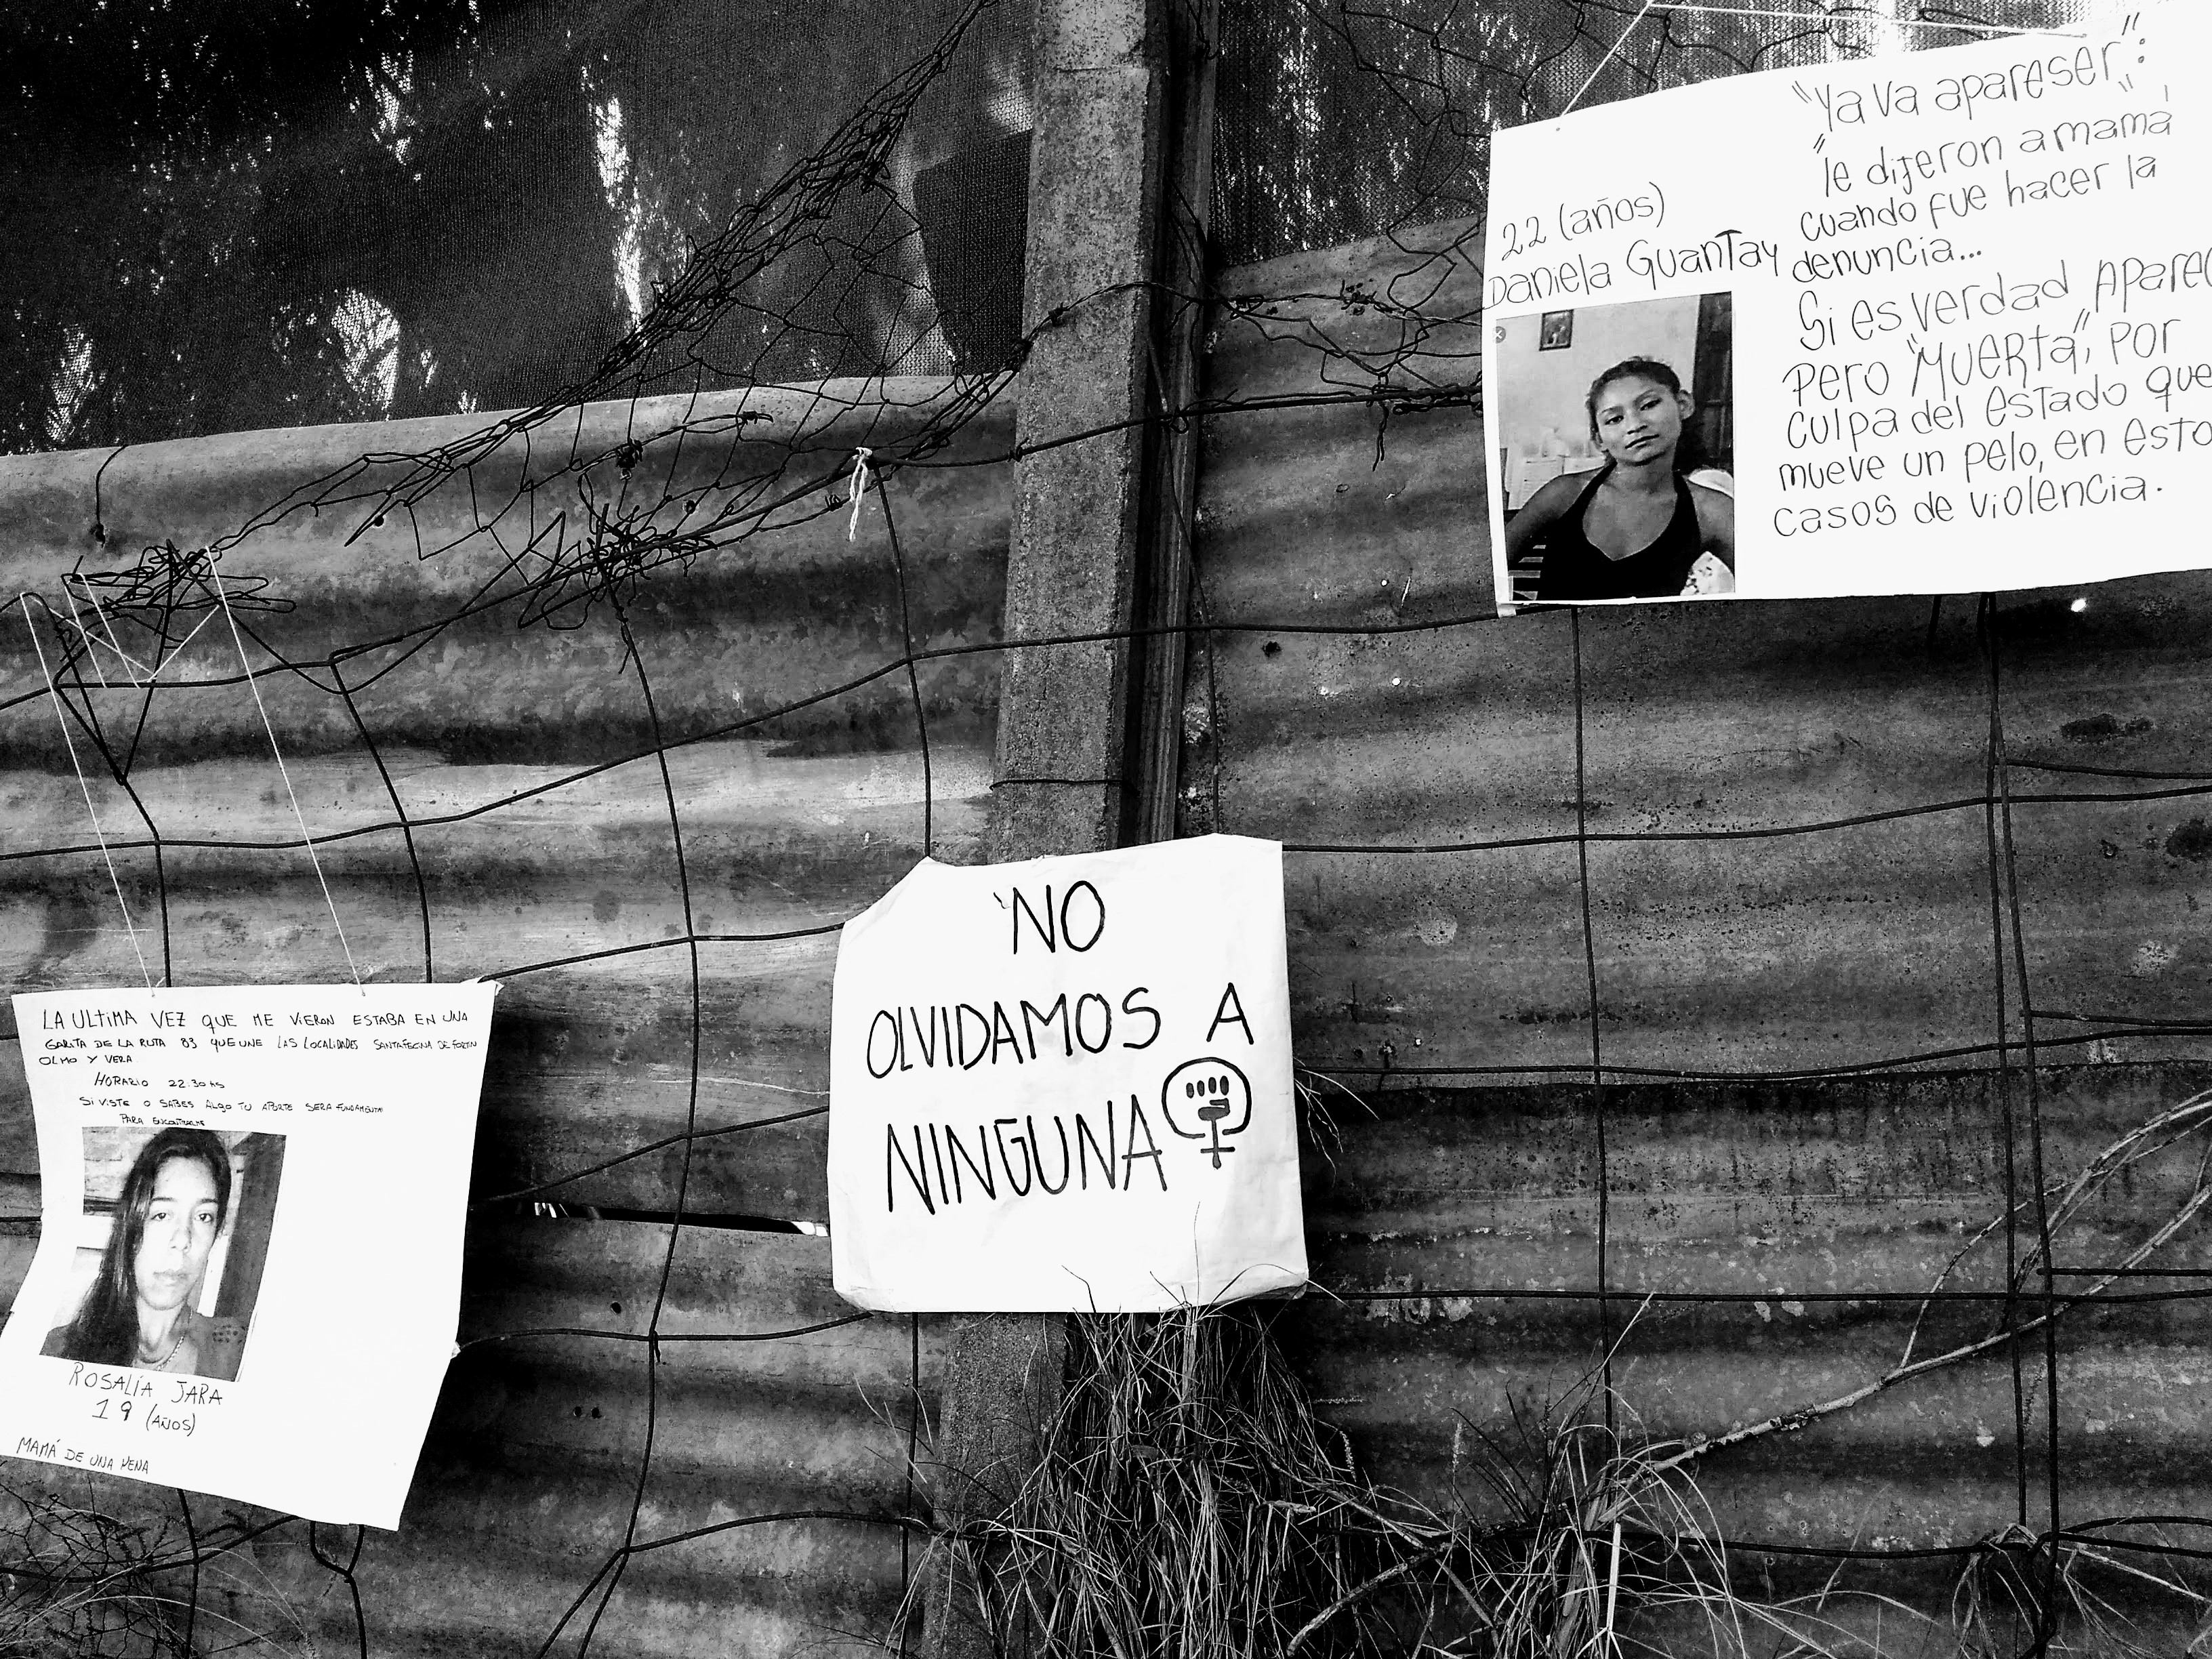 LA ULTIMA VEZ QUE ME VIERON ESTABA EN UNA
GARITA DE LA RUTA 83 QUE UNE LAS LOCALIDADES SANTAFECINA DE FORTIN
OLMO Y VERA
HORARIO 22:30 HS
SI VISTE O SABES ALGO TU APORTE SERA FUNDAMENTAL
PARA ENCONTRARME
ROSALÍA JARA
19 (AÑOS)
MAMÁ DE UNA NENA
NO
OLVIDAMOS A
NINGUNA
22 (años)
Daniela Guantay
"Ya va apareser":
"le dijeron a mamá
cuando fue hacer la
denuncia...
Si es verdad
pero "MUERTA", por
culpa del estado que
mueve un pelo, en
casos de violencia.